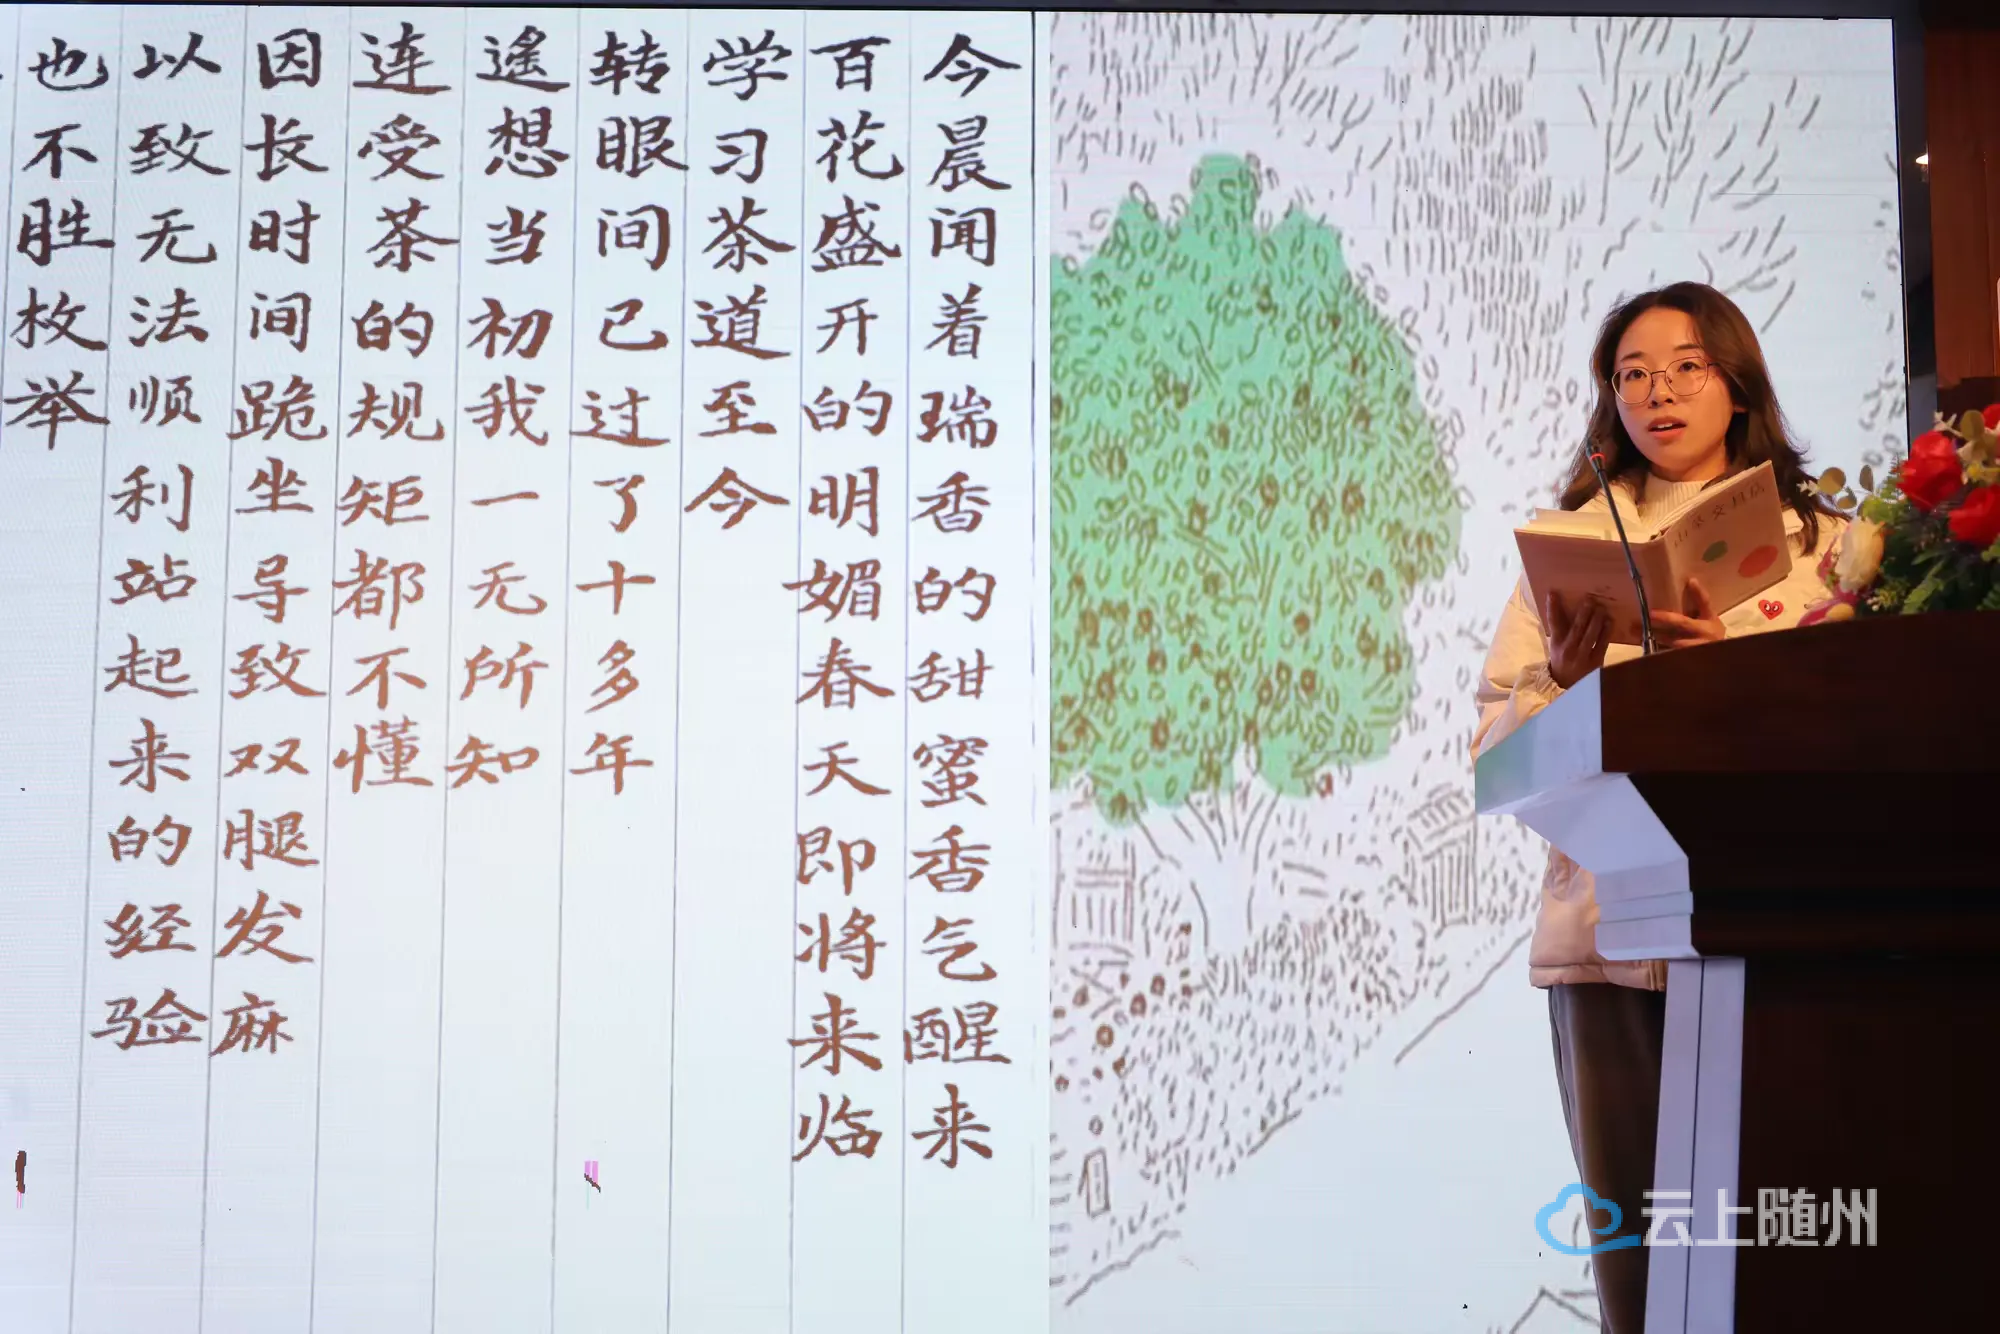 今晨闻着瑞香的甜蜜香气醒来
百花盛开的明媚春天即将来临
学习茶道至今
转眼间已过了十多年
遥想当初我一无所知
连受茶的规矩都不懂
因长时间跪坐导致双腿发麻
以致无法顺利站起来的经验
也不胜枚举
山茶文具店
云上随州